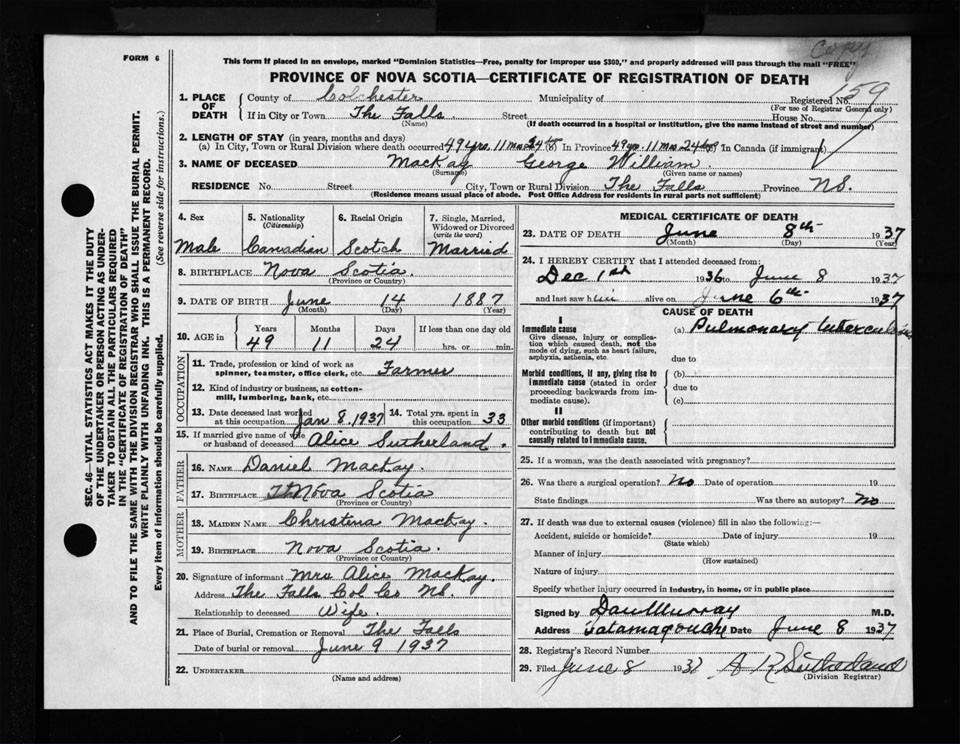 Copy
FORM 6
This form if placed in an envelope, marked "Dominion Statistics—Free, penalty for improper use $300," and properly addressed will pass through the mail "FREE"
PROVINCE OF NOVA SCOTIA—CERTIFICATE OF REGISTRATION OF DEATH
159
1. PLACE OF DEATH County of Colchester Municipality of Registered No.
(For use of Registrar General only)
If in City or Town The Falls Street House No.
(Name) (If death occurred in a hospital or institution, give the name instead of street and number)
2. LENGTH OF STAY (in years, months and days)
(a) In City, Town or Rural Division where death occurred 49 yrs. 11 mos 24 (b) In Province 49 yrs 11 mos 24 (c) In Canada (if immigrant)
3. NAME OF DECEASED MacKay George William
(Surname) (Given name or names)
RESIDENCE No. Street City, Town or Rural Division The Falls Province N.S.
(Residence means usual place of abode. Post Office Address for residents in rural parts not sufficient)
SEC. 46—VITAL STATISTICS ACT MAKES IT THE DUTY
OF THE UNDERTAKER OR PERSON ACTING AS UNDER-
TAKER TO OBTAIN ALL THE PARTICULARS REQUIRED
IN THE "CERTIFICATE OF REGISTRATION OF DEATH"
AND TO FILE THE SAME WITH THE DIVISION REGISTRAR WHO SHALL ISSUE THE BURIAL PERMIT.
WRITE PLAINLY WITH UNFADING INK. THIS IS A PERMANENT RECORD.
Every item of information should be carefully supplied. (See reverse side for instructions.)
4. Sex 5. Nationality 6. Racial Origin 7. Single, Married,
(Citizenship) Widowed or Divorced
(write the word)
Male Canadian Scotch Married
8. BIRTHPLACE Nova Scotia.
(Province or Country)
9. DATE OF BIRTH June 14 1887
(Month) (Day) (Year)
10. AGE IN Years Months Days If less than one day old
49 11 24 hrs. or min.
OCCUPATION
11. Trade, profession or kind of work as
spinner, teamster, office clerk, etc. Farmer
12. Kind of industry or business, as cotton-
mill, lumbering, bank, etc.
13. Date deceased last worked
at this occupation Jan 8, 1937 14. Total yrs. spent in
this occupation 33
15. If married give name of wife
or husband of deceased. Alice Sutherland.
FATHER
16. NAME Daniel MacKay.
17. BIRTHPLACE Nova Scotia
(Province or Country)
MOTHER
18. MAIDEN NAME Christina MacKay.
19. BIRTHPLACE Nova Scotia.
(Province or Country)
20. Signature of informant Mrs Alice MacKay.
Address The Falls Col Co NS.
Relationship to deceased Wife.
21. Place of Burial, Cremation or Removal The Falls
Date of burial or removal June 9 1937
22. UNDERTAKER
(Name and address)
MEDICAL CERTIFICATE OF DEATH
23. DATE OF DEATH June 8th 1937
(Month) (Day) (Year)
24. I HEREBY CERTIFY that I attended deceased from:
Dec 1st 1936 to June 8 1937
and last saw him alive on June 6th 1937
CAUSE OF DEATH
I
Immediate cause (a) Pulmonary tuberculosis
Give disease, injury or complica-
tion which caused death, not the
mode of dying, such as heart failure,
asphyxia, asthenia, etc.
due to
Morbid conditions, if any, giving rise to (b)
immediate cause (stated in order due to
proceeding backwards from im-
mediate cause). (c)
II
Other morbid conditions (if important)
contributing to death but not
causally related to immediate cause.
25. If a woman, was the death associated with pregnancy?
26. Was there a surgical operation? No Date of operation 19
State findings Was there an autopsy? No
27. If death was due to external causes (violence) fill in also the following:—
Accident, suicide or homicide? Date of injury 19
(State which)
Manner of injury
(How sustained)
Nature of injury
Specify whether injury occurred in industry, in home, or in public place
Signed by Dan Murray M.D.
Address Tatamagouche Date June 8 1937
28. Registrar's Record Number
29. Filed June 8 1937 A R Sutherland
(Division Registrar)